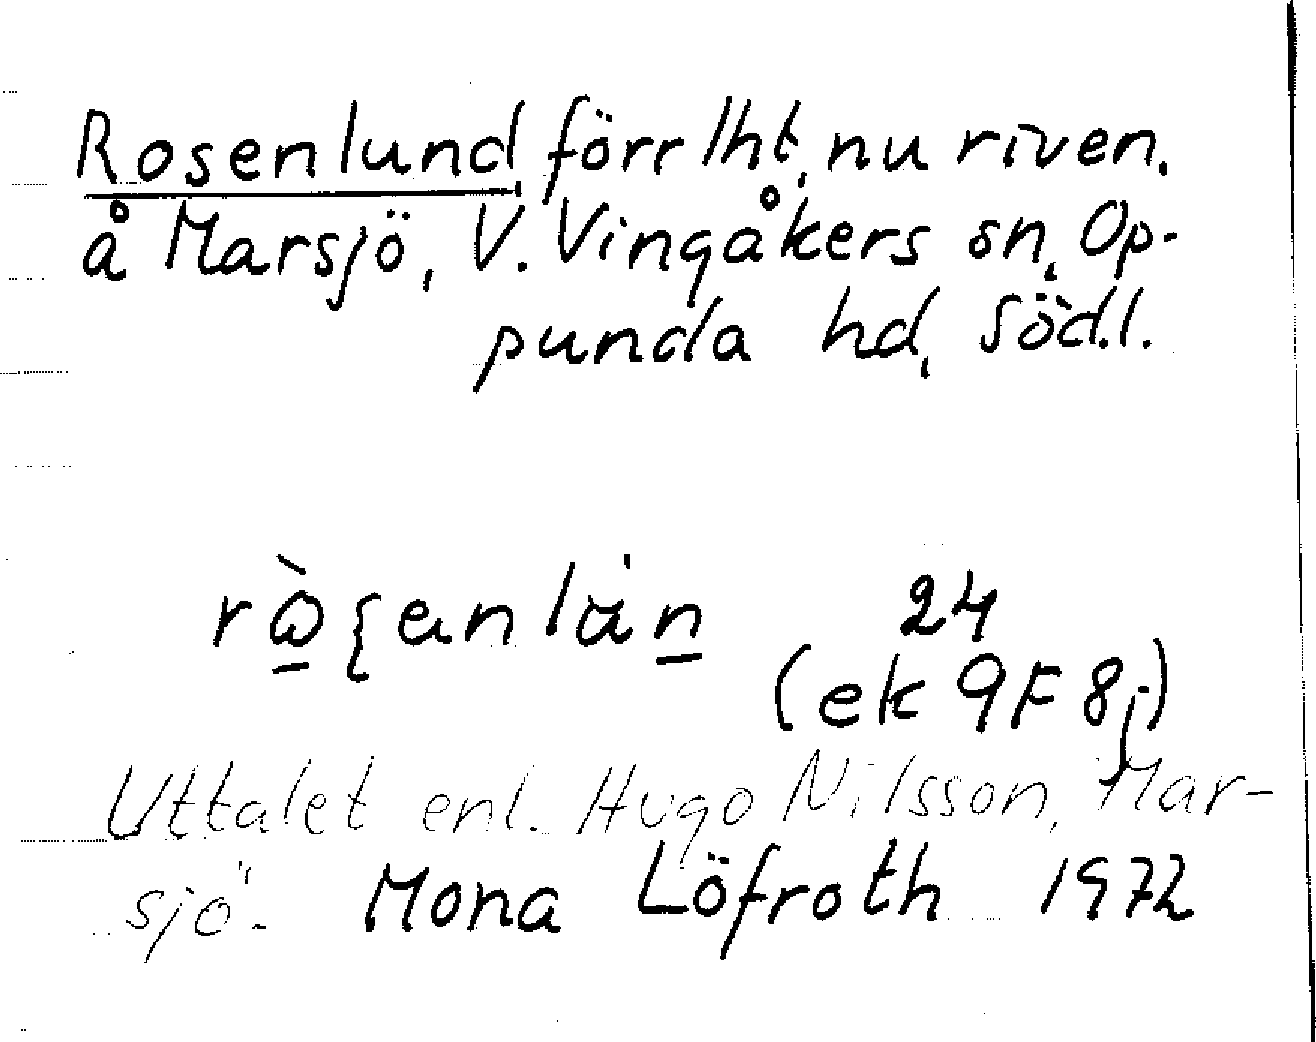 Rosenlund förr lht, nu riven.
å Marsjö, V. Vingåkers sn, Op-
punda hd, Södl.
24
(ek 9F 8j)
Uttalet enl. Hugo Nilsson, Mar-
sjö. Mona Löfroth 1972